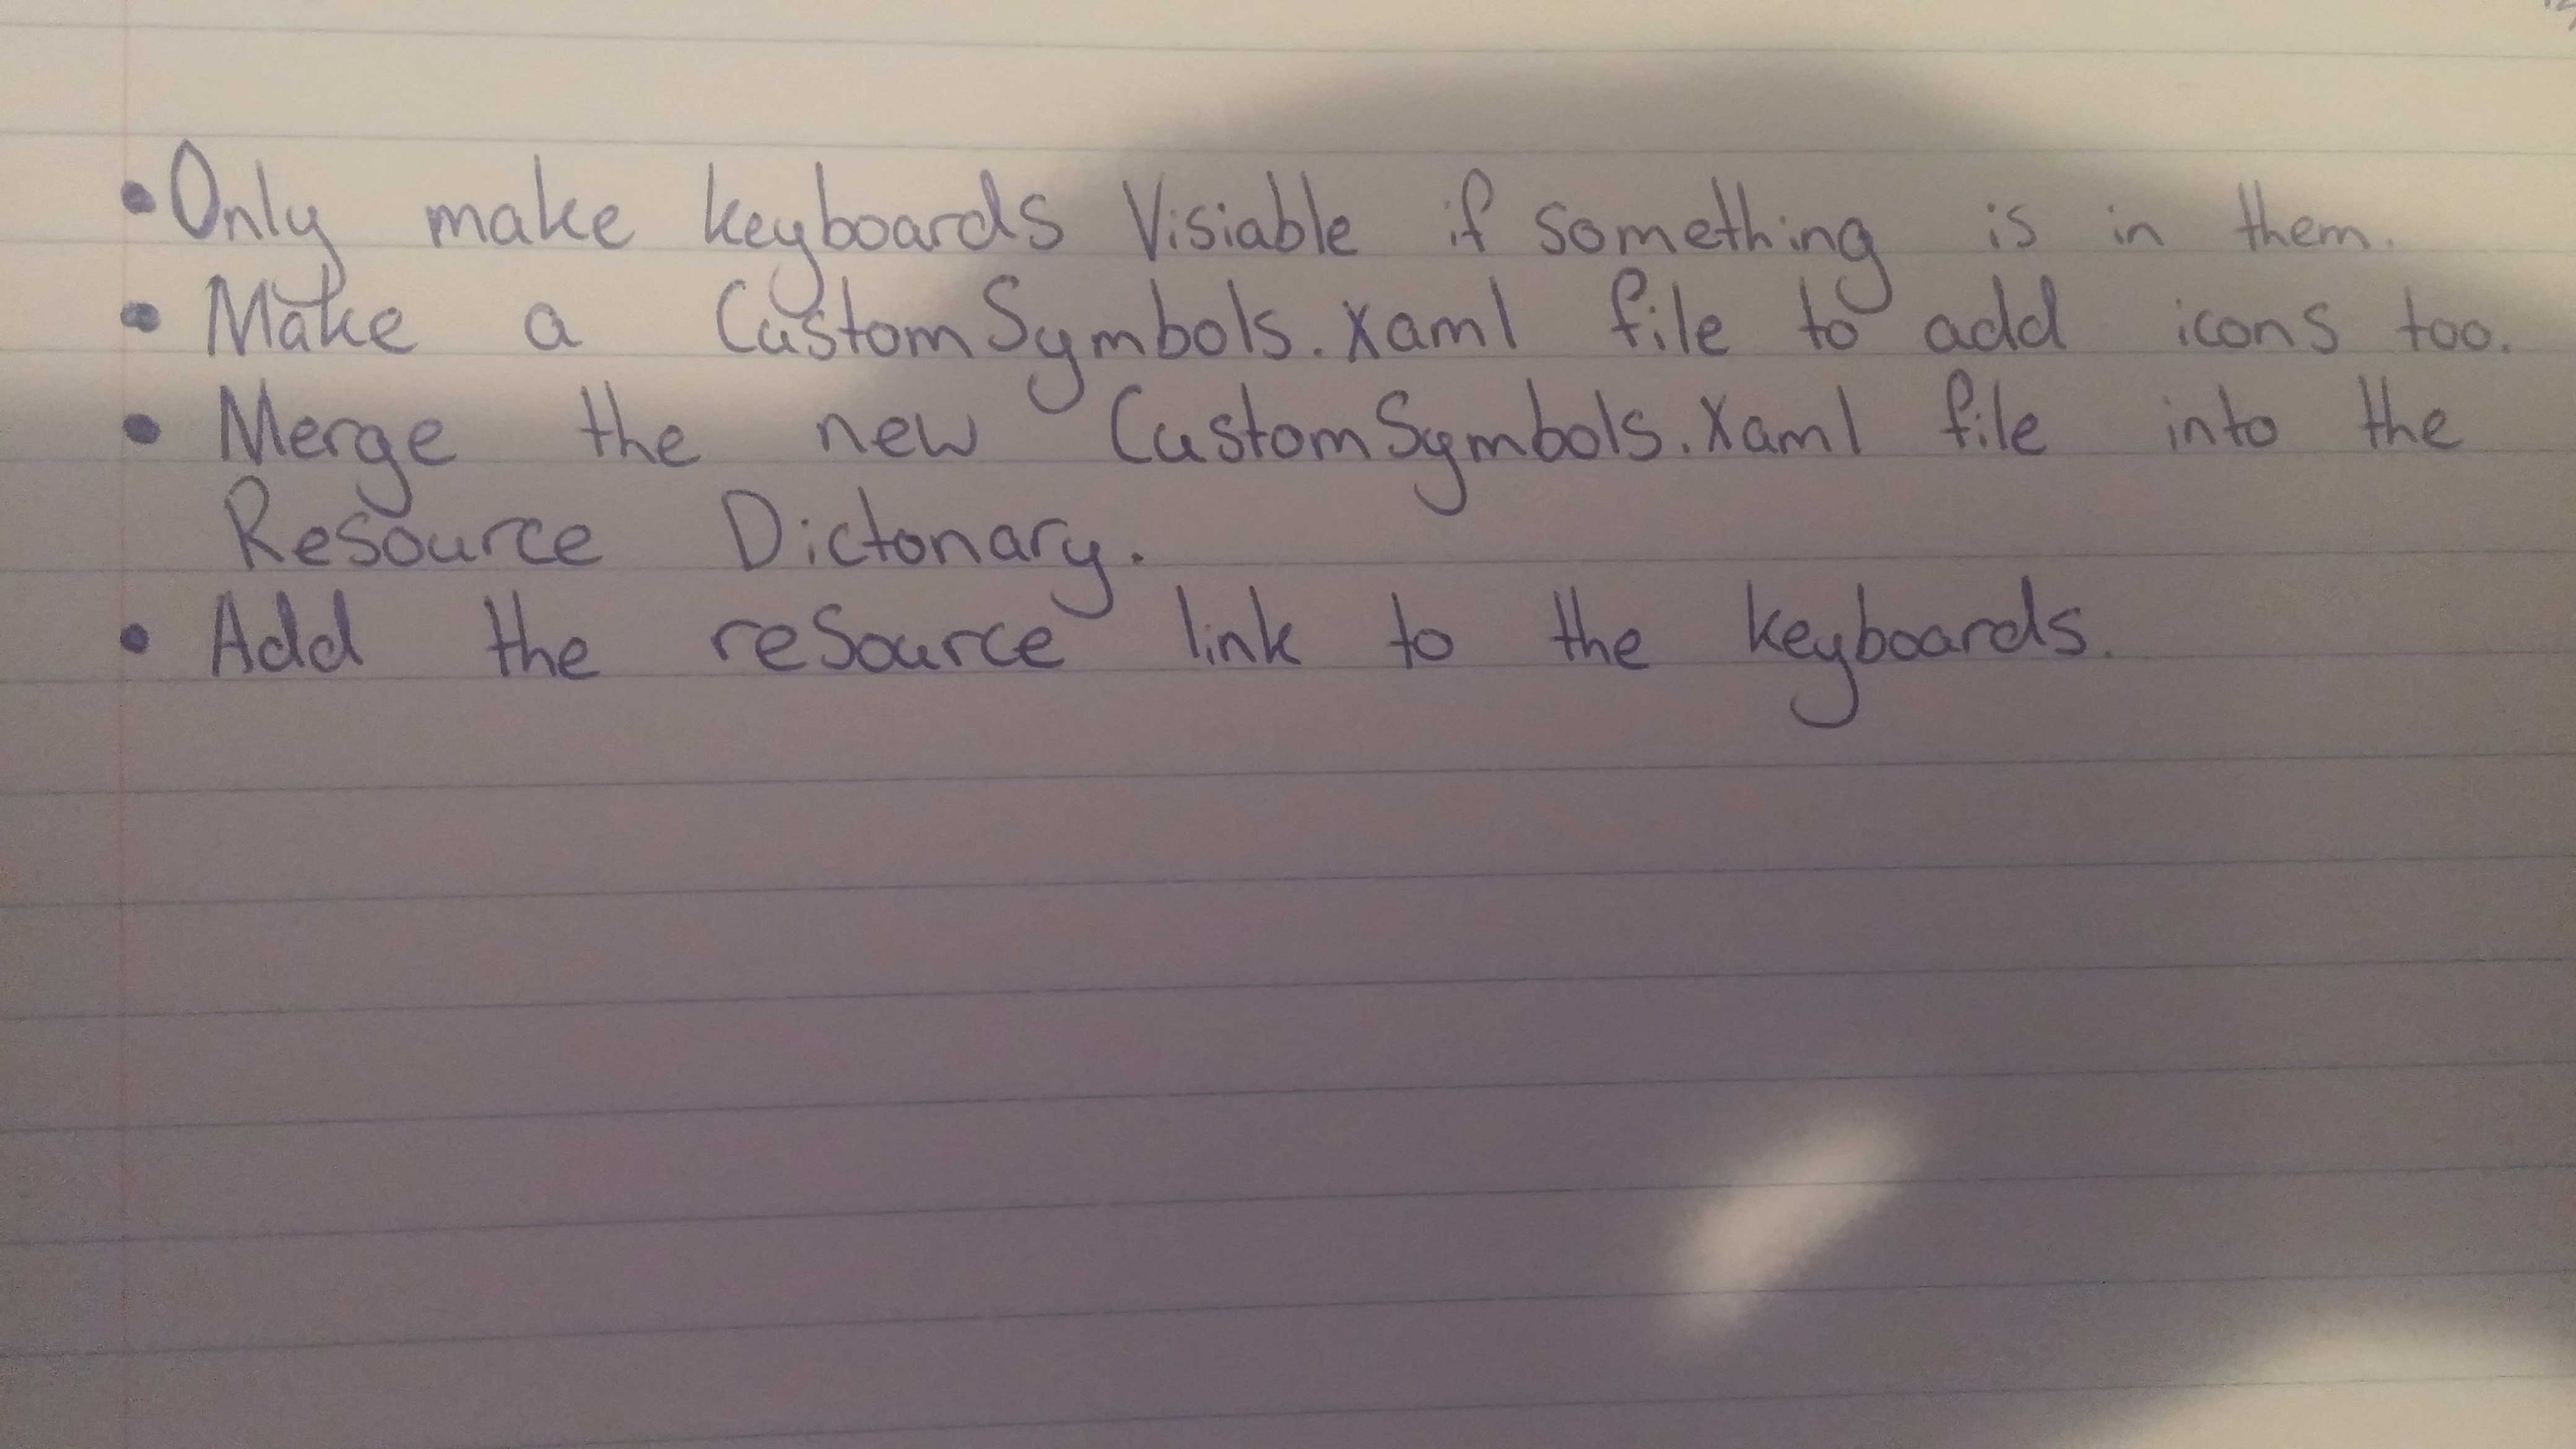 • Only make keyboards Visiable if something is in them.
• Make a CustomSymbols.xaml file to add icons too.
• Merge the new CustomSymbols.Xaml file into the
Resource Dictonary.
• Add the resource link to the keyboards.